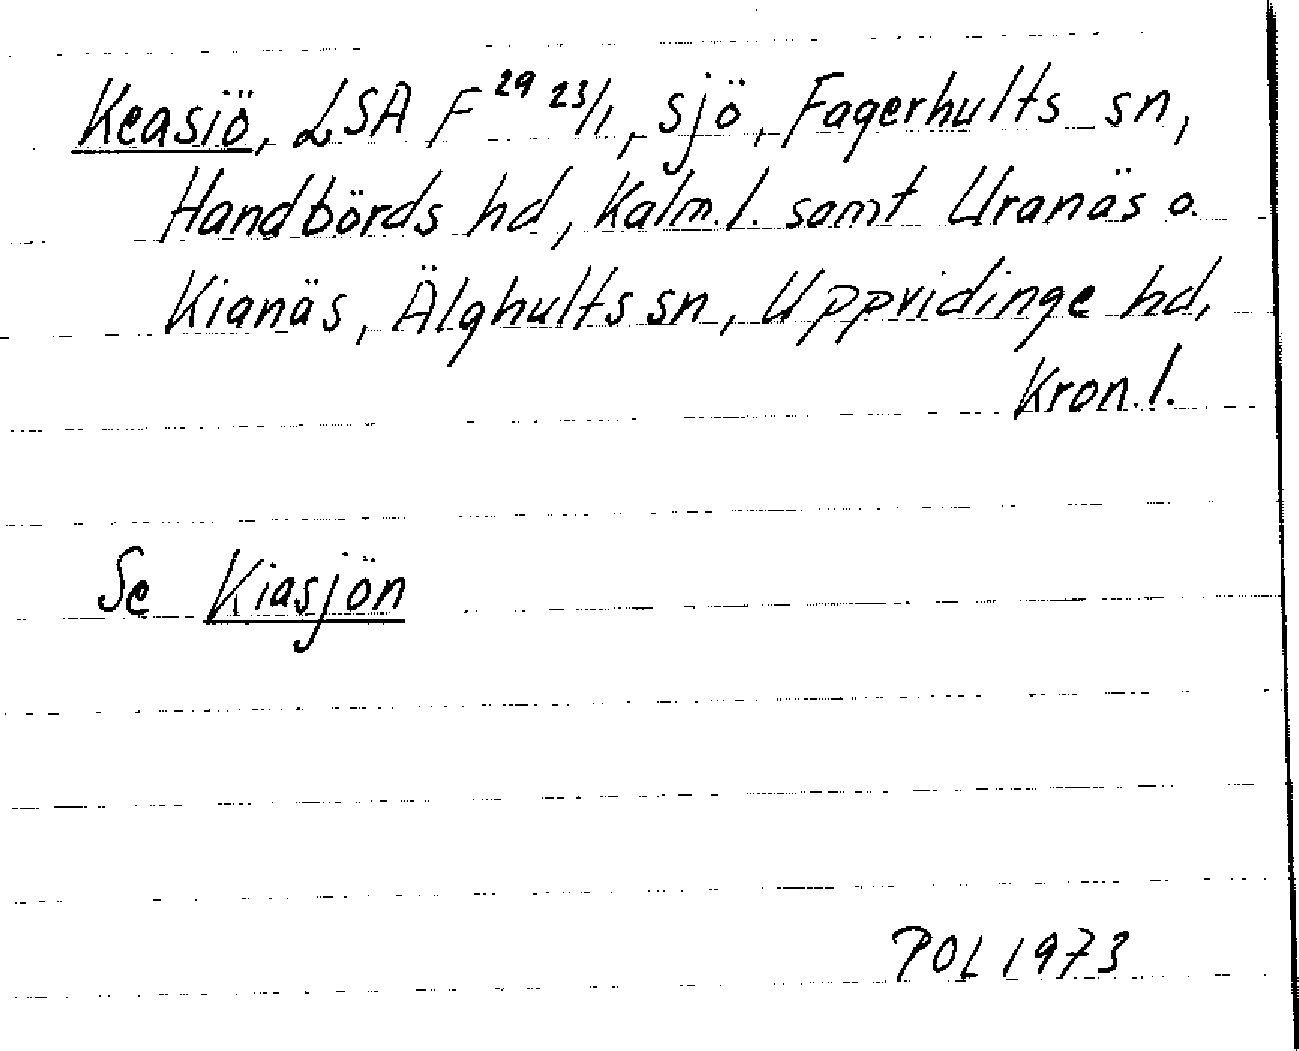 Keasiö, LSA F 29 23/1, sjö, Fagerhults sn,
Handbörds hd, Kalm. l. samt Uranäs o.
Kianäs, Älghults sn, Uppvidinge hd,
Kron. l.
Se Kiasjön
POL 1973